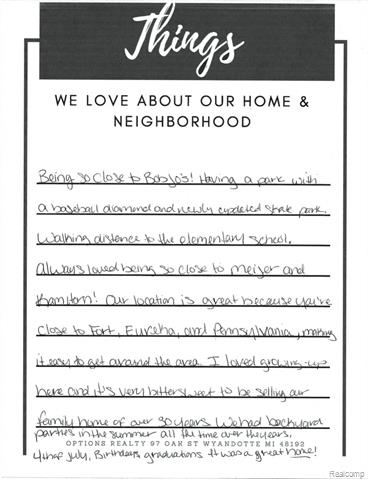 Things
WE LOVE ABOUT OUR HOME &
NEIGHBORHOOD
Being so close to Bob Jo's! Having a park with
a baseball diamond and newly updated skate park.
Walking distance to the elementary school.
Always loved being so close to meijer and
Ram Horn! Our location is great because you're
close to Fort, Eureka, and Pennsylvania, making
it easy to get around the area. I loved growing-up
here and it's very bittersweet to be selling our
family home of over 30 years. We had backyard
parties in the summer all the time over the years.
OPTIONS REALTY 97 OAK ST WYANDOTTE MI 48192
4th of July, Birthdays, graduations It was a great home!
Realcomp